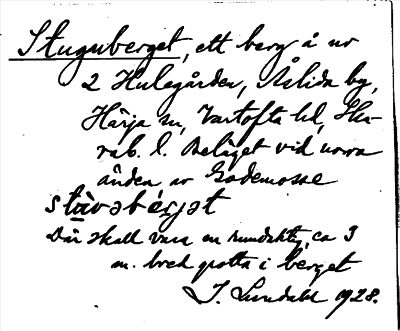 Stuguberget, ett berg å nr
2 Hulegården, Åslida by,
Härja sn, Vartofta hd, Ska-
rab. l. Beläget vid norra
änden av Godemosse
stùvəbérjət
Där skall vara en rundaktig, ca 3
m. bred grotta i berget
J. Lundahl 1928.